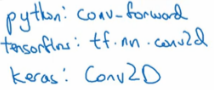 python: conv-forward
tensorflow: tf.nn.conv2d
Keras: Conv2D